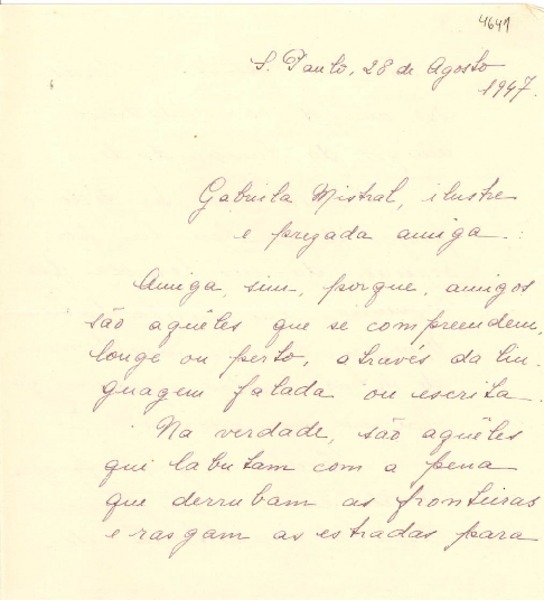 4641
S. Paulo, 28 de Agosto
1947.
Gabriela Mistral, ilustre
e prezada amiga:
Amiga, sim, porque, amigos
são aquêles que se compreendem,
longe ou perto, através da lin-
guagem falada ou escrita.
Na verdade, são aquêles
que labutam com a pena
que derrubam as fronteiras
e rasgam as estradas para